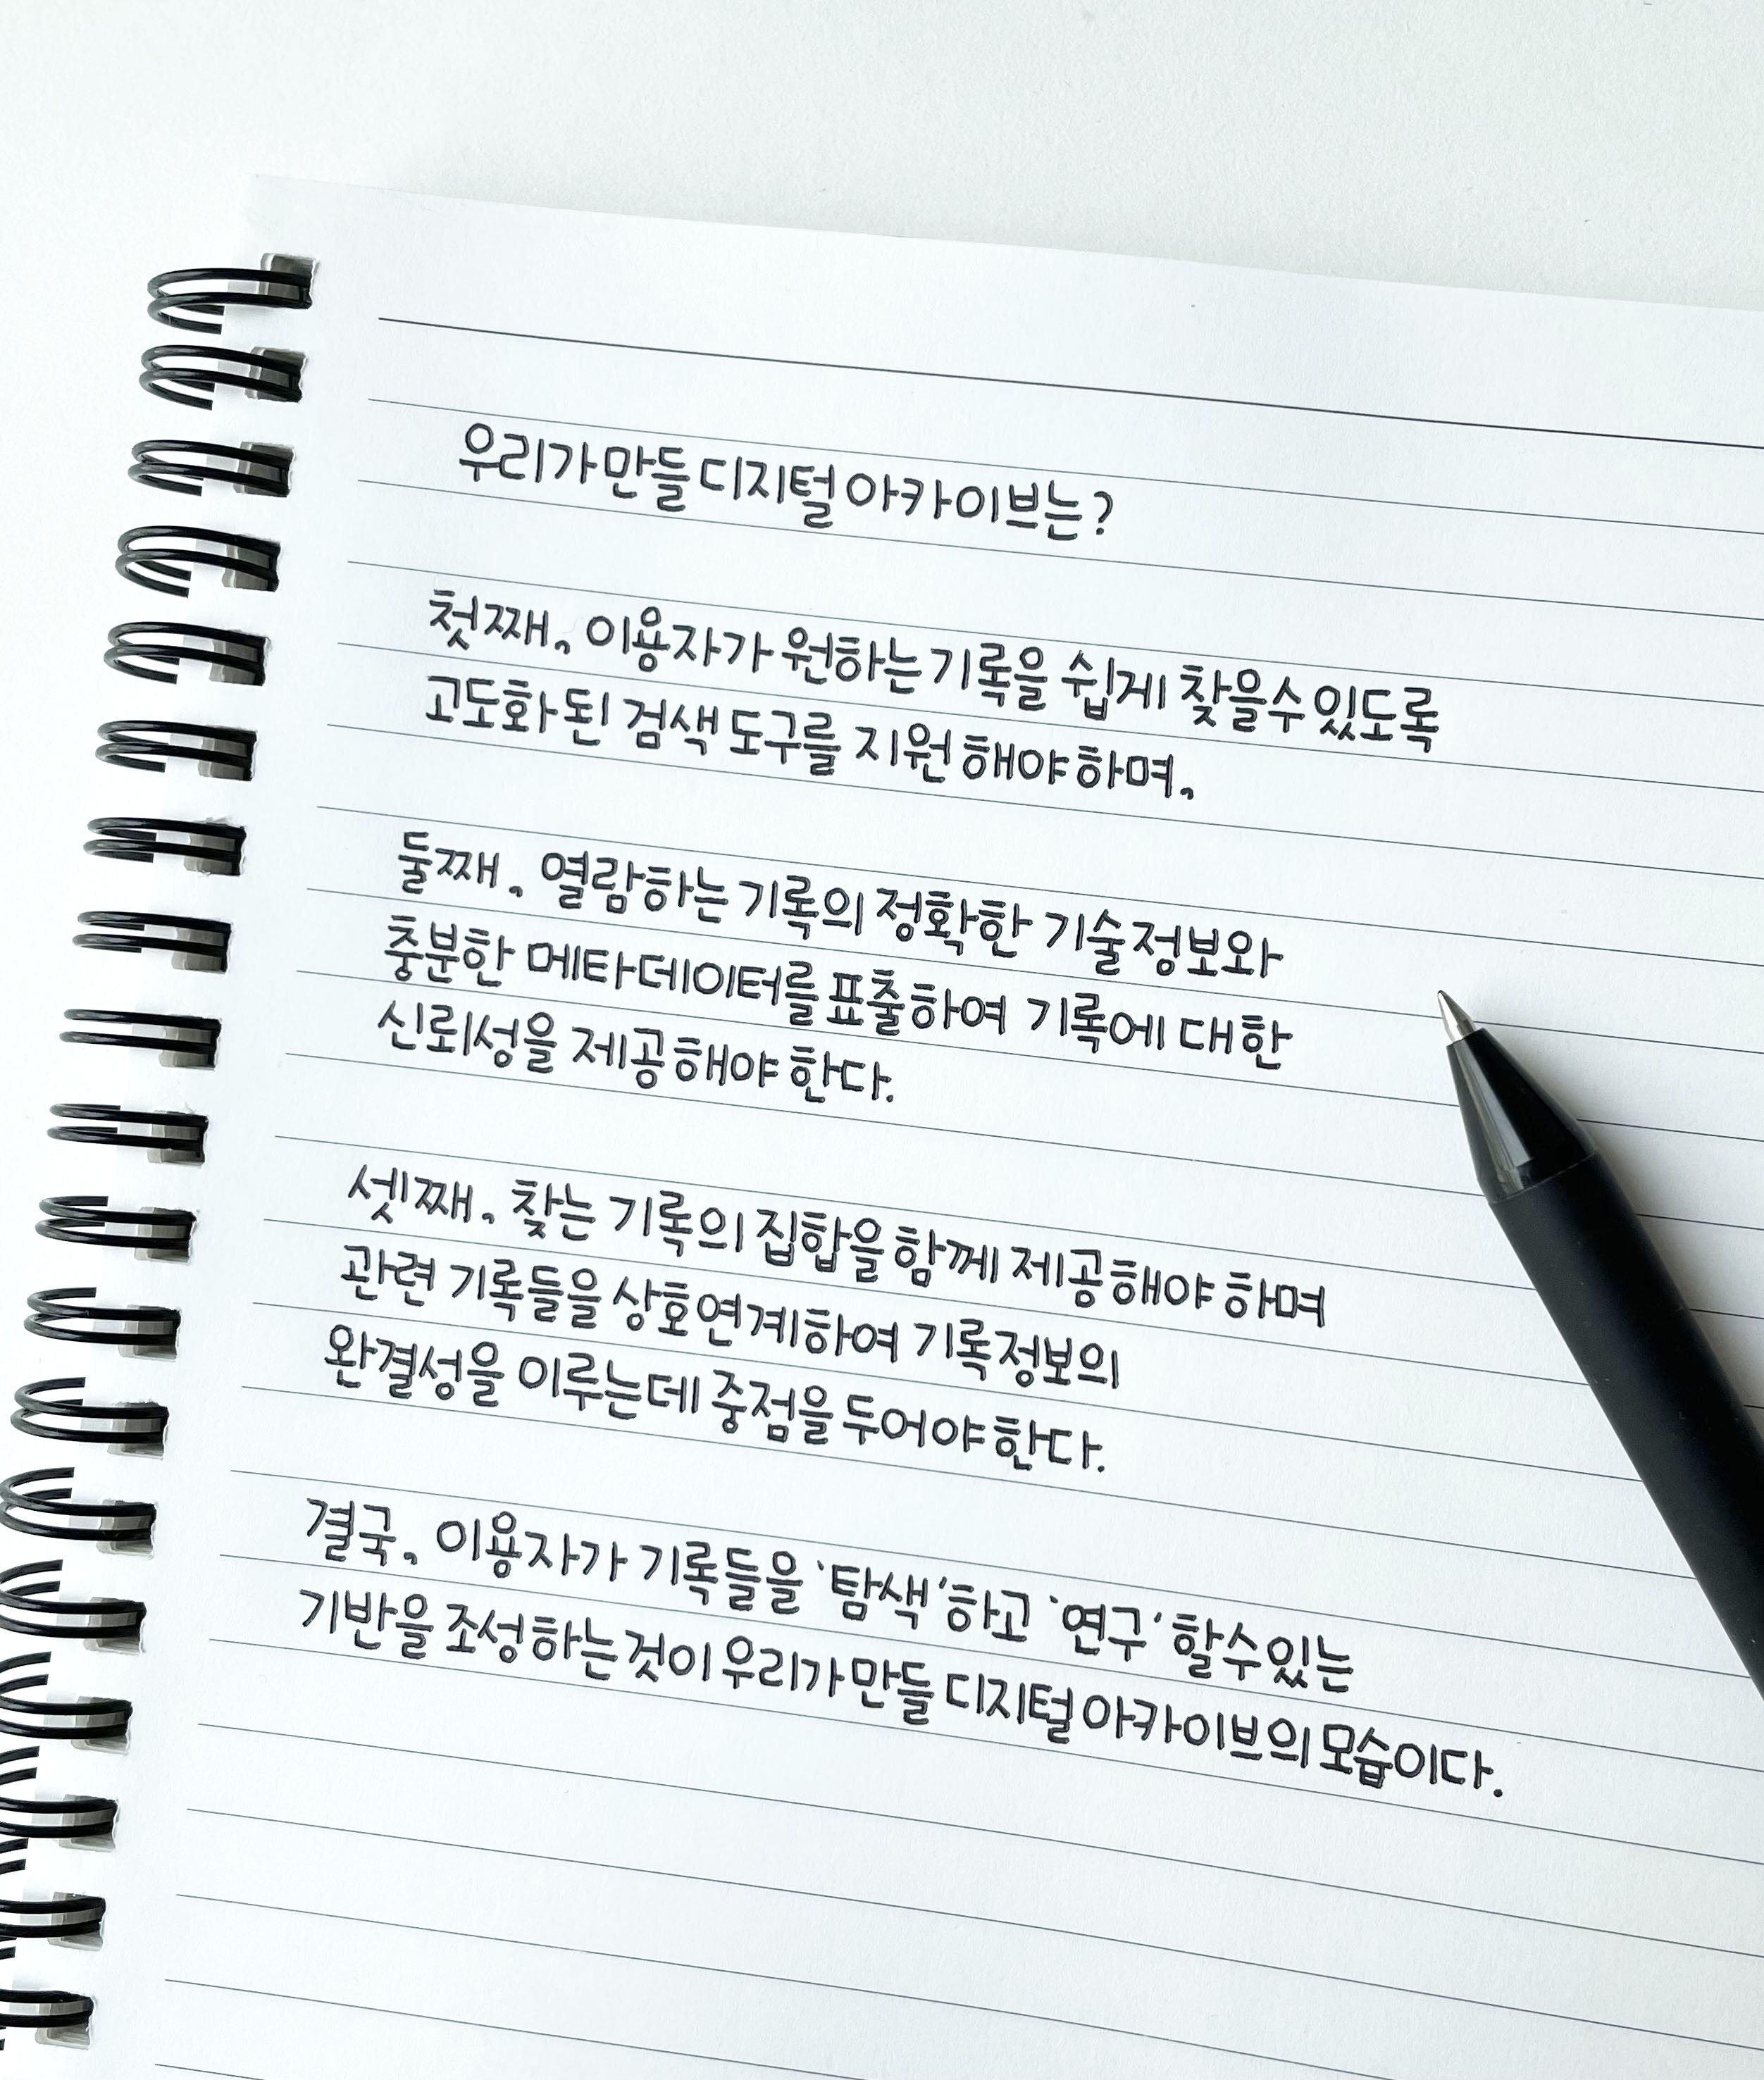 우리가 만들 디지털 아카이브는?
첫째, 이용자가 원하는 기록을 쉽게 찾을수 있도록
고도화 된 검색 도구를 지원 해야 하며,
둘째, 열람하는 기록의 정확한 기술정보와
충분한 메타데이터를 표출하여 기록에 대한
신뢰성을 제공해야 한다.
셋째, 찾는 기록의 집합을 함께 제공해야 하며
관련 기록들을 상호연계하여 기록정보의
완결성을 이루는데 중점을 두어야 한다.
결국, 이용자가 기록들을 '탐색'하고 '연구' 할수 있는
기반을 조성하는 것이 우리가 만들 디지털 아카이브의 모습이다.